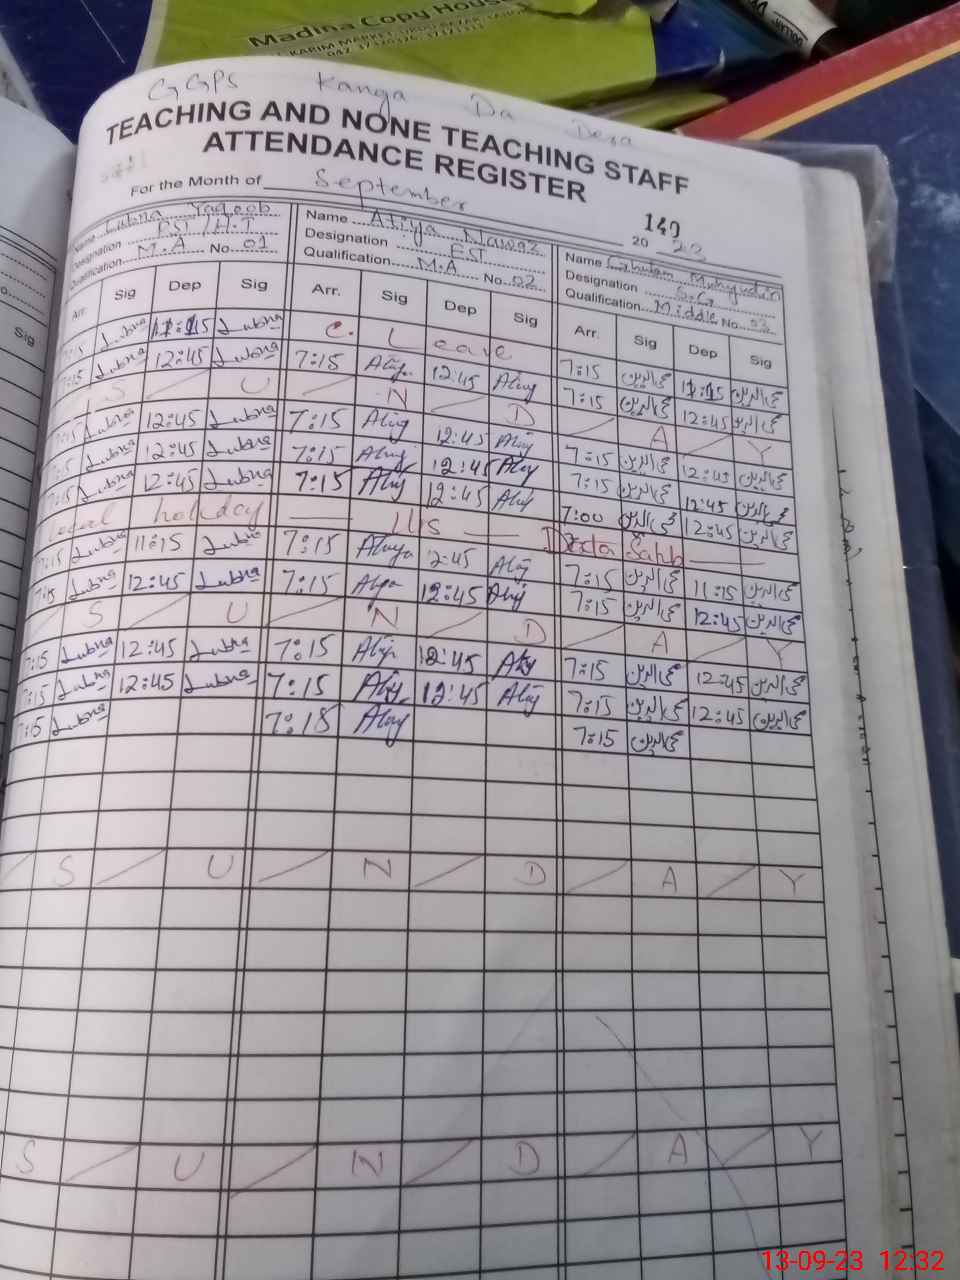 Madina Copy House
KARIM MARKET, URDU BAZAR, LAHORE
DOLLAR
GGPS Kanga Da Dera
TEACHING AND NONE TEACHING STAFF
ATTENDANCE REGISTER
149
For the Month of September 20 23
Name Lubna Yaqoob Name Atiya Nawaz Name Ghulam Muhyudin
Designation PST / H.T Designation EST Designation S.G
Qualification M.A No. 01 Qualification M.A No. 02 Qualification Middle No. 03
Arr. Sig Dep Sig Arr. Sig Dep Sig Arr. Sig Dep Sig
7:15 Lubna 11:15 Lubna C. Leave 7:15 محی الدین 11:15 محی الدین
7:15 Lubna 12:45 Lubna 7:15 Atiya 12:45 Atiy 7:15 محی الدین 12:45 محی الدین
S U N D A Y
7:15 Lubna 12:45 Lubna 7:15 Atiy 12:45 Atiy 7:15 محی الدین 12:45 محی الدین
7:15 Lubna 12:45 Lubna 7:15 Atiy 12:45 Atiy 7:15 محی الدین 12:45 محی الدین
7:15 Lubna 12:45 Lubna 7:15 Atiy 12:45 Atiy 7:00 محی الدین 12:45 محی الدین
Local holiday Urs Data Sahb
7:15 Lubna 11:15 Lubna 7:15 Atiya 2:45 Atiy 7:15 محی الدین 11:15 محی الدین
7:15 Lubna 12:45 Lubna 7:15 Atiya 12:45 Atiy 7:15 محی الدین 12:45 محی الدین
S U N D A Y
7:15 Lubna 12:45 Lubna 7:15 Atiy 12:45 Atiy 7:15 محی الدین 12:45 محی الدین
7:15 Lubna 12:45 Lubna 7:15 Atiy 12:45 Atiy 7:15 محی الدین 12:45 محی الدین
7:15 Lubna 7:15 Atiy 7:15 محی الدین
S U N D A Y
S U N D A Y
Sig
13-09-23 12:32